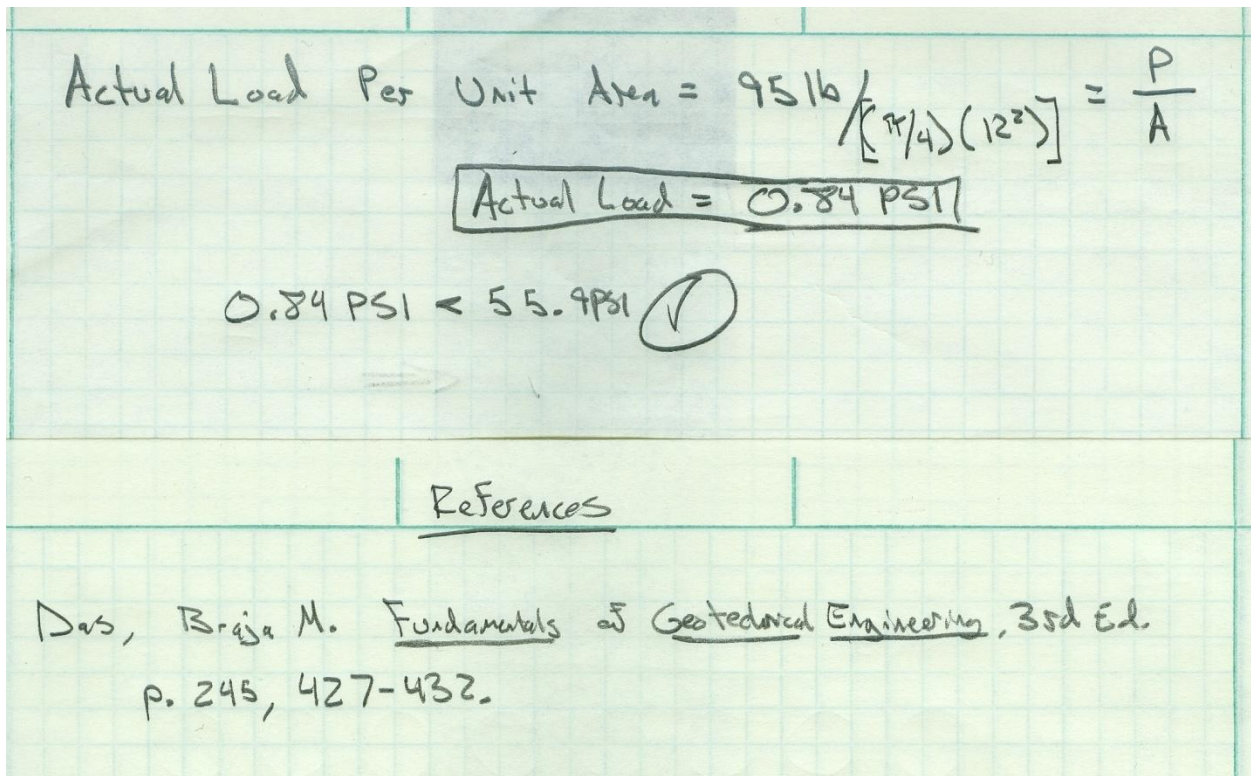 Actual Load Per Unit Area = 95 lb/[(π/4)(12²)] = P/A
Actual Load = 0.84 PSI
0.84 PSI < 55.9PSI ✓
References
Das, Braja M. Fundamentals of Geotechnical Engineering, 3rd Ed.
p. 245, 427-432.